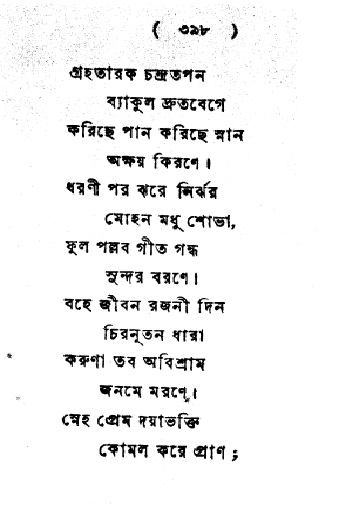 ( ৩৯৮ )
গ্রহতারক চন্দ্রতপন
ব্যাকুল দ্রুতবেগে
করিছে পান করিছে স্নান
অক্ষয় কিরণে।
ধরণী পর ঝরে নির্ঝর
মোহন মধু শোভা,
ফুল পল্লব গীত গন্ধ
সুন্দর বরণে।
বহে জীবন রজনী দিন
চিরনূতন ধারা
করুণা তব অবিশ্রাম
জনমে মরণে।
স্নেহ প্রেম দয়াভক্তি
কোমল করে প্রাণ ;